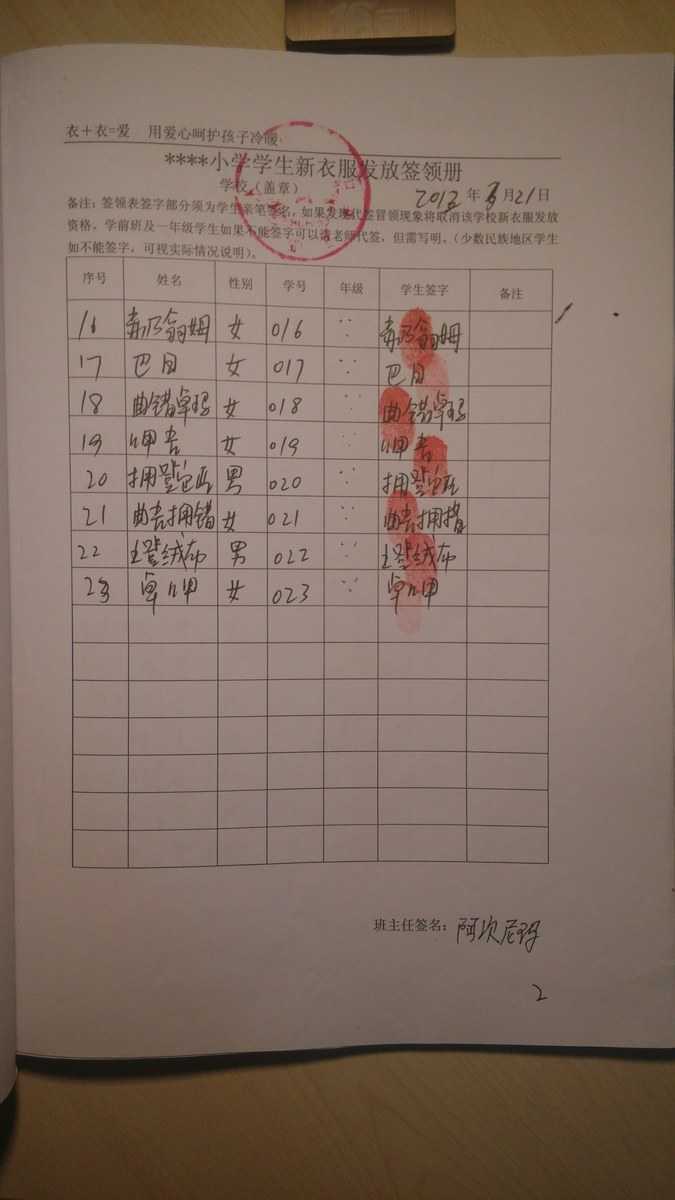 衣＋衣=爱 用爱心呵护孩子冷暖
****小学学生新衣服发放签领册
学校（盖章） 2013 年 月 21 日
备注：签领表签字部分须为学生亲笔签名，如果发现代签冒领现象将取消该学校新衣服发放
资格。学前班及一年级学生如果不能签字可以请老师代签，但需写明。（少数民族地区学生
如不能签字，可视实际情况说明）。
序号 姓名 性别 学号 年级 学生签字 备注
16 翁姆 女 016 翁姆
17 巴日 女 017 巴日
18 曲错卓玛 女 018 曲错卓玛
19 呷 女 019 呷
20 拥登 男 020 拥登
21 曲 拥错 女 021 曲 拥
22 登绒布 男 022 登绒布
23 卓呷 女 023 卓呷
班主任签名： 阿次尼玛
2